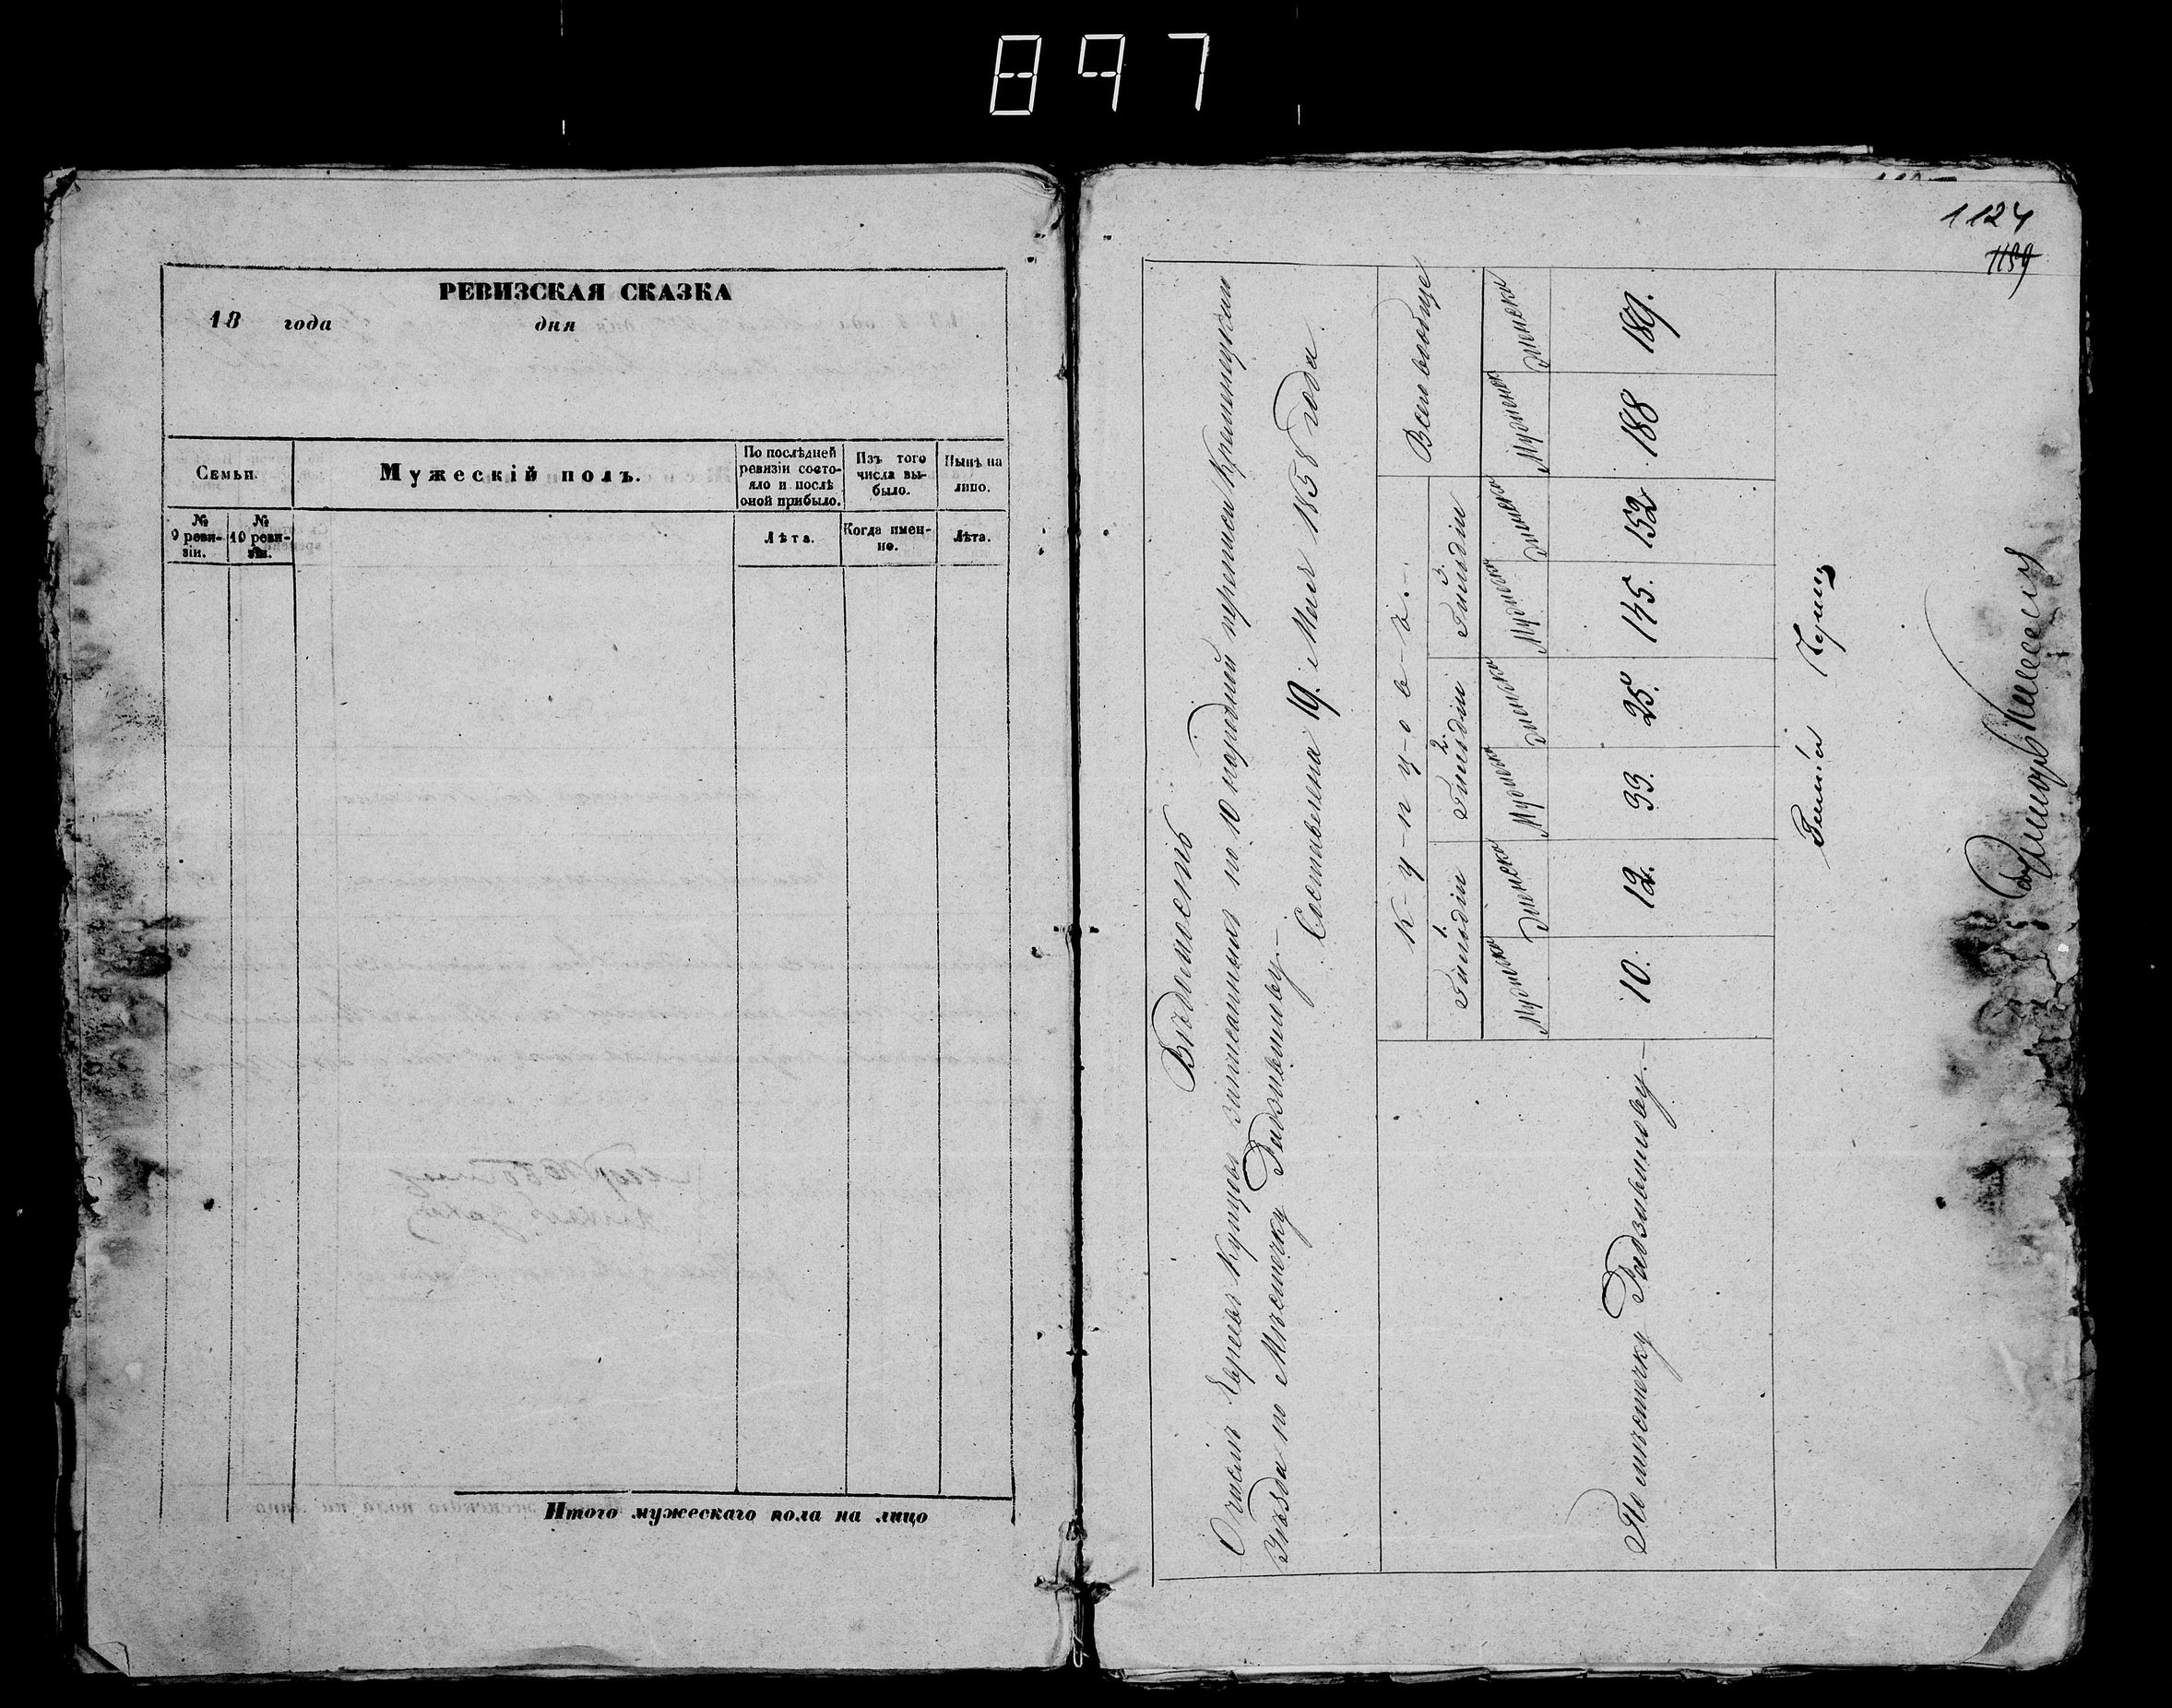 897
РЕВИЗСКАЯ СКАЗКА
18 года дня
Семьи.
Мужескій полъ.
По послѣдней ревизіи состояло и послѣ оной прибыло.
Изъ того числа выбыло.
Нынѣ на лицо.
№ 9 ревизіи.
№ 10 ревизіи.
Лѣта.
Когда именно.
Лѣта.
Итого мужескаго пола на лицо
1124
1189
Вѣдомость
О числѣ Евреевъ Купцовъ записанныхъ по 10 народной переписи Кременецкаго
Уѣзда по Мѣстечку Радзивилову.—
Составлена 19. Мая 1858 года.
К-у-п-ц-о-в-ъ.—
Всего вообще
1. Гильдіи
2. Гильдіи
3. Гильдіи
Мужеска
Женска
Мужеска
Женска
Мужеска
Женска
Мужеска
Женска
По мѣстечку Радзивилову.—
10.
12.
33.
25.
145.
152
188
189.